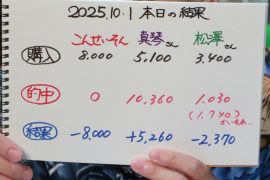 2025.10.1 本日の結果
こんせいそん 真琴さん 松澤さん
購入 8.000 5.100 3.400
的中 0 10,360 1.030
(1.740)
結果 -8000 +5,260 -2,370